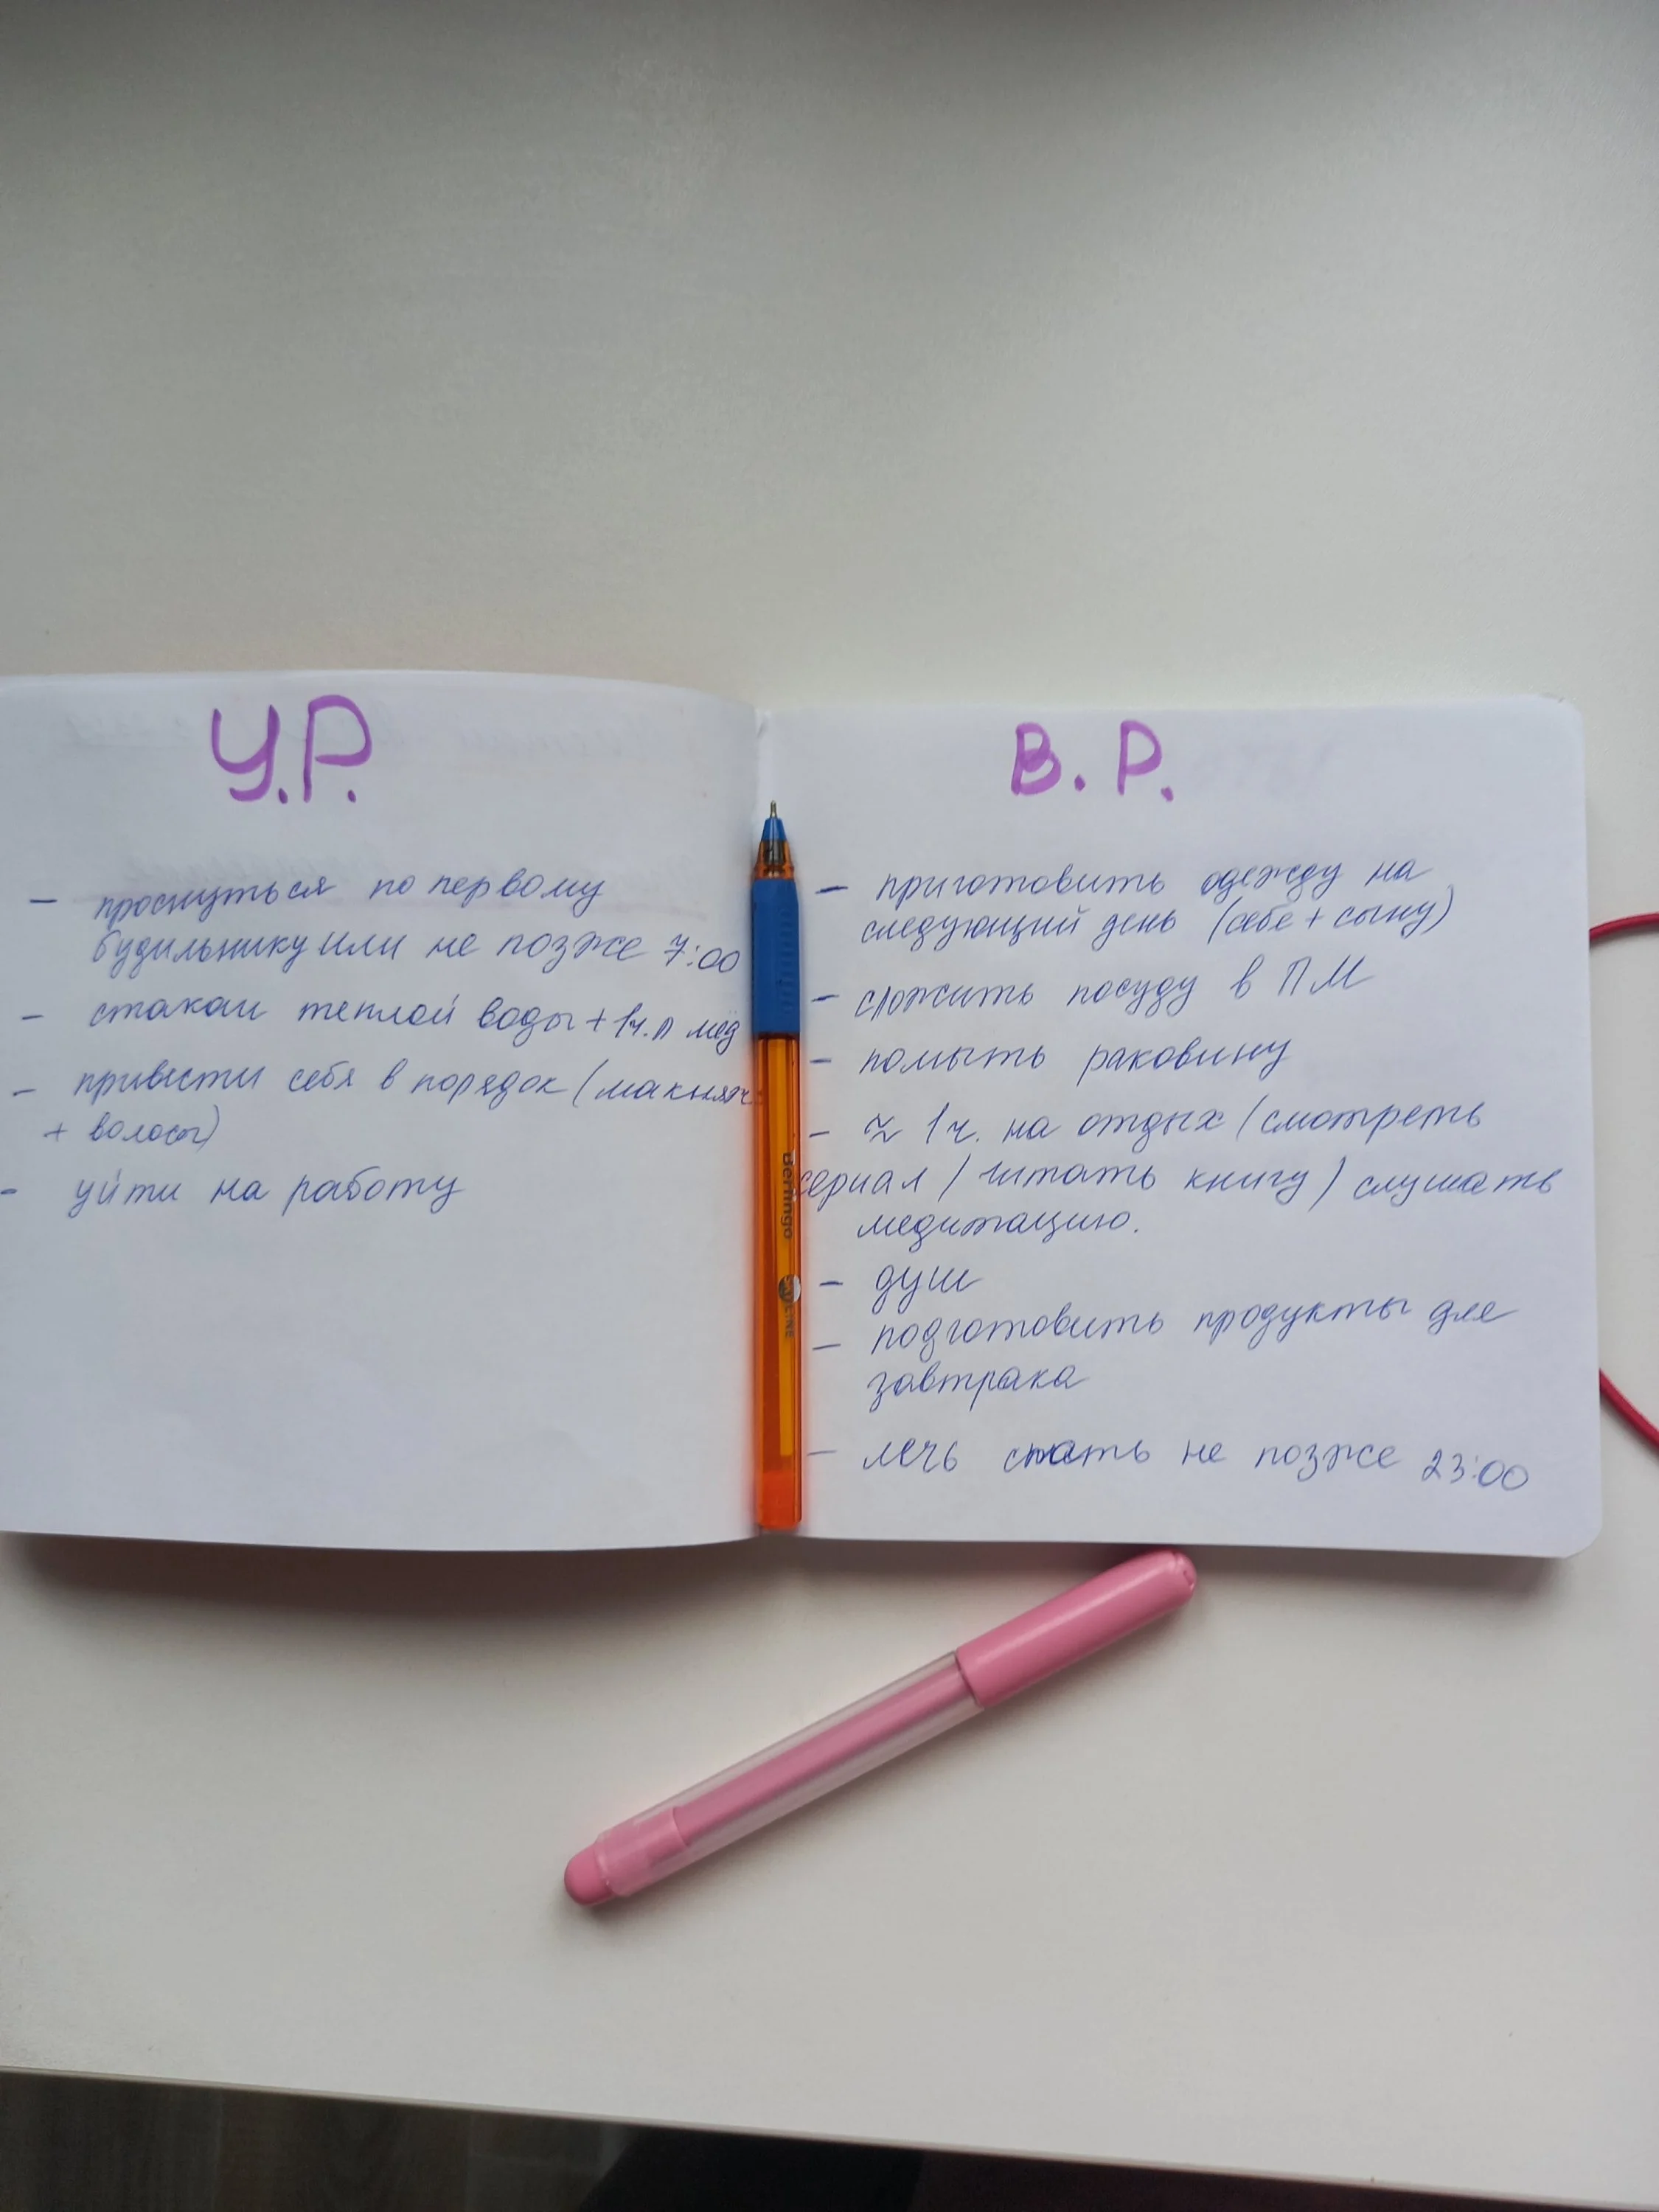 У.Р.
- проснуться по первому
будильнику или не позже 7:00
- стакан теплой воды + 1ч.л мёд
- привести себя в порядок (макияж
+ волосы)
- уйти на работу
В. Р.
- приготовить одежду на
следующий день (себе + сыну)
- сложить посуду в ПМ
- помыть раковину
- ≈ 1ч. на отдых (смотреть
сериал / читать книгу) слушать
медитацию.
- душ
- подготовить продукты для
завтрака
- лечь спать не позже 23:00
Berlingo